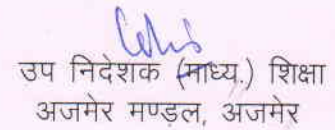 उप निदेशक (माध्य.) शिक्षा
अजमेर मण्डल, अजमेर